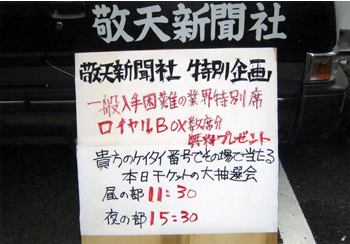 敬天新聞社
敬天新聞社 特別企画
一般入手困難の業界特別席
ロイヤルBOX数席分
無料プレゼント
貴方のケイタイ番号でその場で当たる
本日チケットの大抽選会
昼の部 11:30
夜の部 15:30